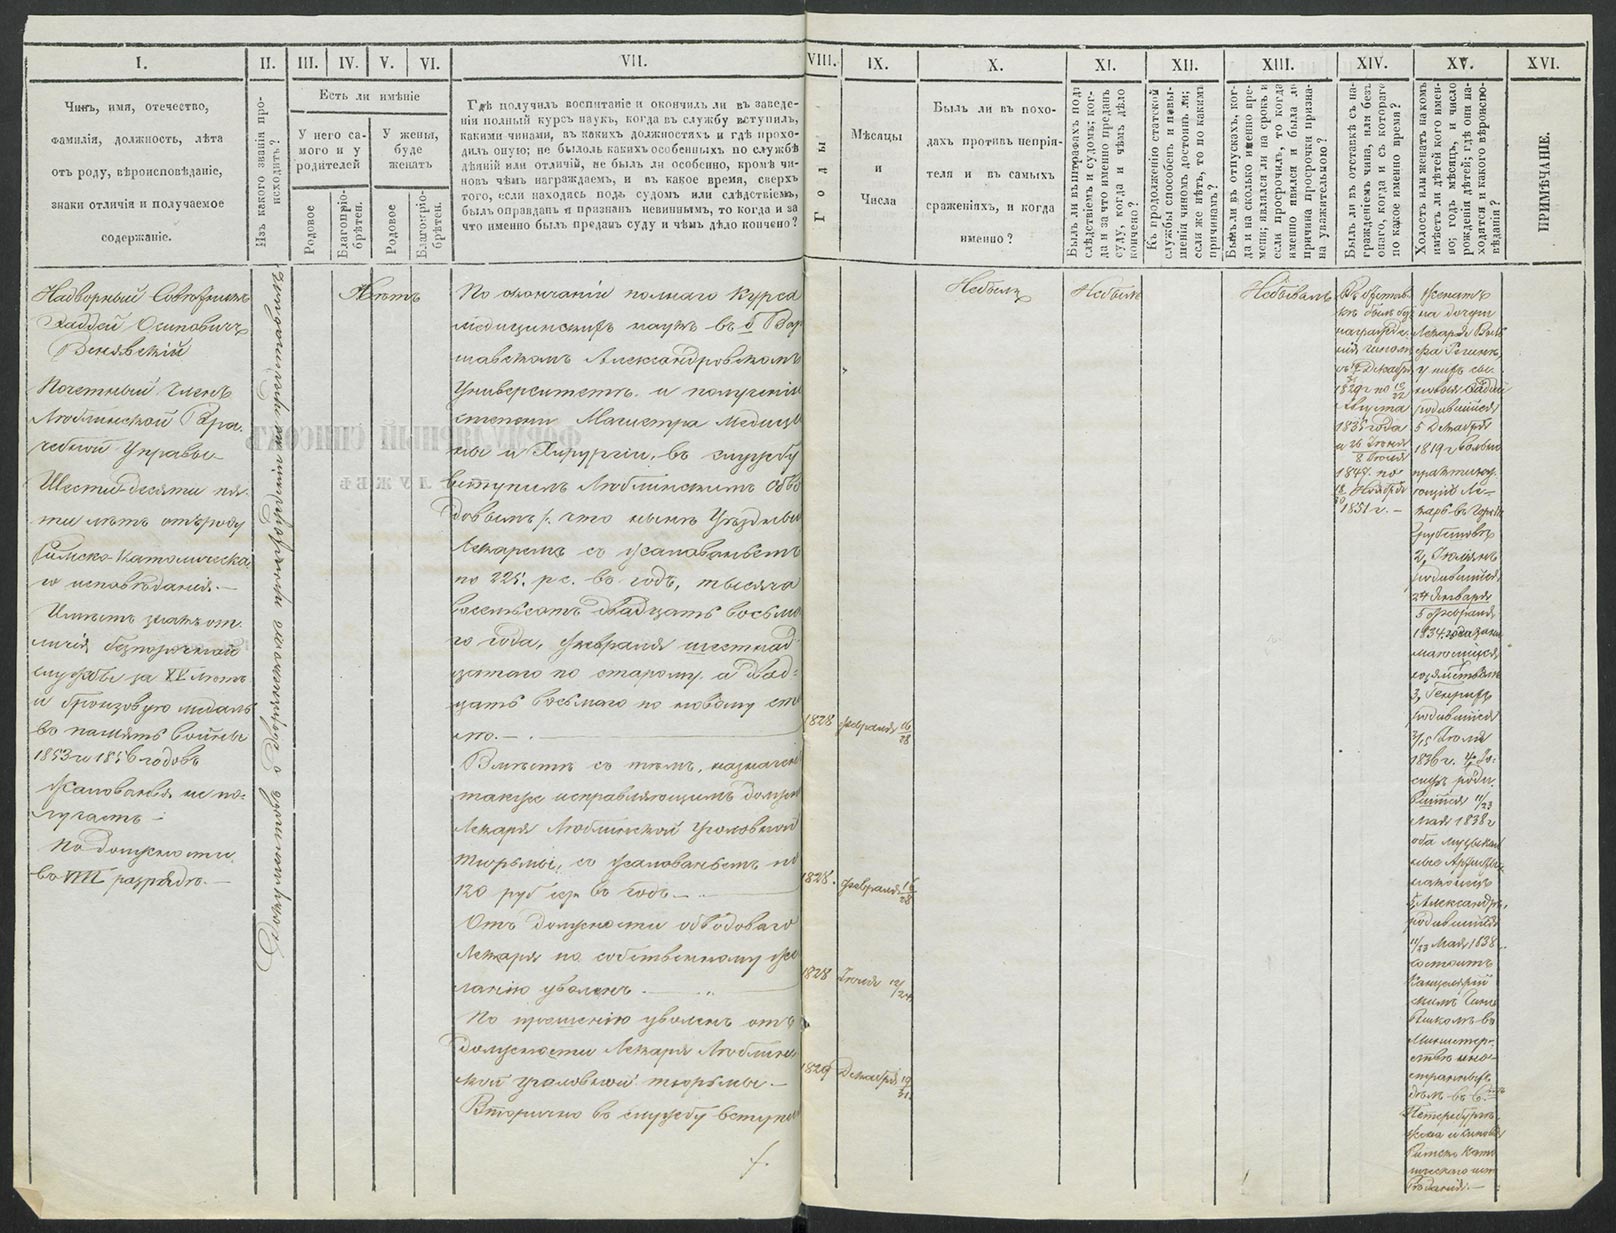 I.
II.
III.
IV.
V.
VI.
VII.
VIII.
IX.
X.
XI.
XII.
XIII.
XIV.
XV.
XVI.
Чинъ, имя, отечество,
фамилія, должность, лѣта
отъ роду, вѣроисповѣданіе,
знаки отличія и получаемое
содержаніе.
Изъ какого званія про-
исходитъ?
Есть ли имѣніе
У него са-
мого и у
родителей
У жены,
буде
женатъ
Родовое
Благопріо-
брѣтен.
Родовое
Благопріо-
брѣтен.
Гдѣ получилъ воспитаніе и окончилъ ли въ заведе-
ніи полный курсъ наукъ, когда въ службу вступилъ,
какими чинами, въ какихъ должностяхъ и гдѣ прохо-
дилъ оную; не было ль какихъ особенныхъ по службѣ
дѣяній или отличій, не былъ ли особенно, кромѣ чи-
новъ чѣмъ награждаемъ, и въ какое время, сверхъ
того, если находясь подъ судомъ или слѣдствіемъ,
былъ оправданъ и признанъ невиннымъ, то когда и за
что именно былъ преданъ суду и чѣмъ дѣло кончено?
Годы
Мѣсяцы
и
Числа
Былъ ли въ похо-
дахъ противъ непрія-
теля и въ самыхъ
сраженіяхъ, и когда
именно?
Былъ ли въ штрафахъ подъ
слѣдствіемъ и судомъ; ког-
да и за что именно преданъ
суду, когда и чѣмъ дѣло
кончено?
Къ продолженію статской
службы способенъ и къ повы-
шенія чиномъ достоинъ ли;
если же нѣтъ, то по какимъ
причинамъ?
Былъ ли въ отпускахъ, ког-
да и на сколько именно вре-
мени; являлся ли на срокъ и
если просрочилъ, то когда
именно явился и была ли
причина просрочки призна-
на уважительною?
Былъ ли въ отставкѣ съ на-
гражденіемъ чина, или безъ
онаго, когда и съ котораго
по какое именно время?
Холостъ или женатъ на комъ
имѣетъ ли дѣтей кого имен-
но; годъ мѣсяцъ, и число
рожденія дѣтей; гдѣ они на-
ходятся и какого вѣроиспо-
вѣданія?
ПРИМѢЧАНІЕ.
Надворный Совѣтникъ
Фаддей Осиповичъ
Венявскій
Почетный Членъ
Люблинской Вра-
чебной Управы.
Шестидесяти пя-
ти лѣтъ отъ роду
Римско-Католическа-
го исповѣданія.—
Имѣетъ знакъ от-
личія безпорочной
службы за XV лѣтъ
и бронзовую медаль
въ память войны
1853 и 1856 годовъ
Жалованья не по-
лучаетъ —
По должности
въ VIII разрядѣ. —
Нѣтъ
По окончаніи полнаго курса
медицинскихъ наукъ въ б. Вар
шавскомъ Александровскомъ
Университетѣ и полученіи
степени Магистра Медици
ны и Хирургіи, въ службу
вступилъ Люблинскимъ Обво
довымъ /. что нынѣ Уѣздный
Лекаремъ съ жалованьемъ
по 225. р. с. въ годъ, тысяча
восемьсотъ двадцать восьма-
го года, Февраля шестнад-
цатаго по старому, а двад-
цать восьмаго по новому сти
лю. —
1828 Февраля 16/28
Вмѣстѣ съ тѣмъ, назначенъ
также исправляющимъ долж
Лекаря Люблинской Уголовной
тюрьмы, съ жалованьемъ по
120 руб сер. въ годъ —
1828. Февраля 16/28
Отъ должности обводоваго
Лекаря по собственному же
ланію уволенъ. —
1828 Іюля 12/24
По прошенію уволенъ отъ
должности Лекаря Люблин-
ской уголовной тюрьмы —
1829 Декабря 19/31
Вторично въ службу вступи
Небылъ
Небылъ
Небывалъ
женатъ
на дочери
Лекаря Воль
фа Регинѣ,
у нихъ сы-
новья
родившійся
5 Декабря
1819 г.
практику-
ющій Ле-
карь въ городѣ
Грубешовѣ
2, Юліянъ
родившійся
24 Января
5 Февраля
1834 года зани-
мающійся
хозяйствомъ
3, Генрихъ
родившійся
3/15 Іюля
1836 г. 4, Іо-
сифъ роди-
вшійся 11/23
Мая 1838 г
оба музыкаль
ные Артисты
5 Александръ,
родившійся
11/23 Мая 1838
состоитъ
Канцелярій
скимъ Чинов
никомъ въ
Министер-
ствѣ ино-
странныхъ
дѣлъ въ С.
Петербургѣ.
жена и сыновья
Римско Като
лическаго испо
вѣданія. —
1835 года
1847. по
1851 г. —